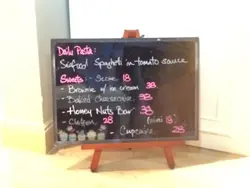 Daily Pasta :
Seafood Spaghetti in tomato sauce
Sweets : - Scone 18
- Brownie w/ ice cream 38
- Baked Cheesecake 38
- Honey Nuts Bar 38
- 28 mini 18
Cupcake 28